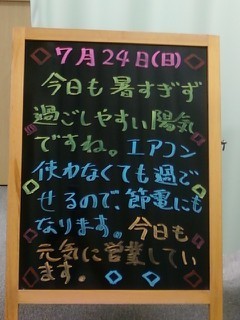 7月24日(日)
今日も暑すぎず
過ごしやすい陽気
ですね。エアコン
使わなくても過ご
せるので、節電にも
なります。今日も
元気に営業してい
ます。